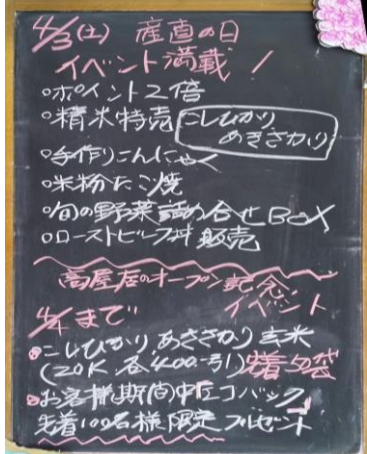 4/3(土) 産直の日
イベント満載!
○ポイント2倍
○精米特売 こしひかり
あきさかり
○手作りこんにゃく
○米粉たこ焼
○旬の野菜詰め合せBOX
○ローストビーフ丼 販売
高屋店のオープン記念
イベント
4/4まで
○こしひかり あきさかり 玄米
(20K 各400引) 先着50袋
○お客様期間中エコバック
先着100名様限定プレゼント